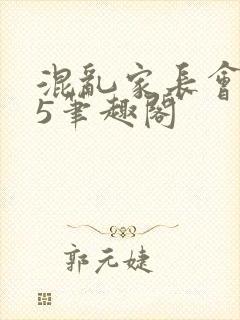 混亂家長會
5筆趣閣
郭元婕